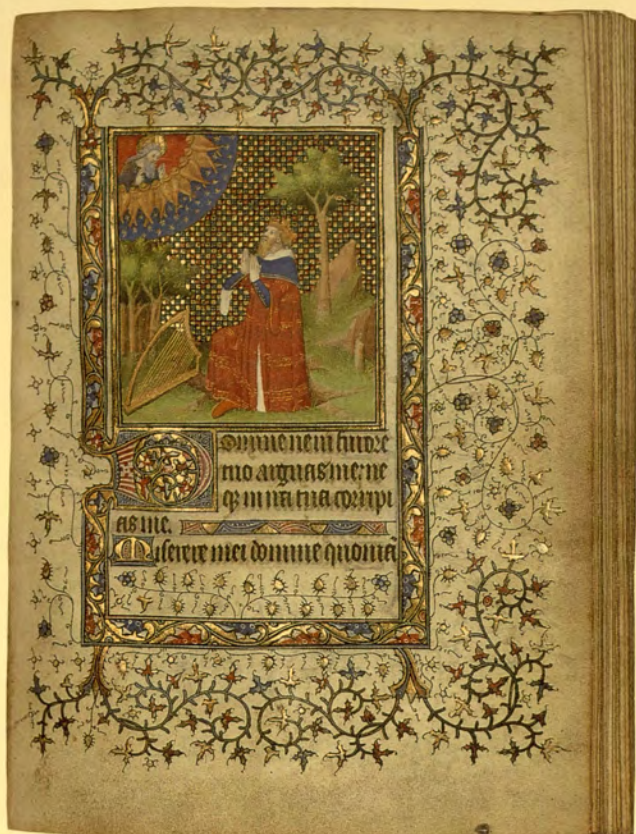 Domine ne in furore
tuo arguas me: ne
q̨ in ira tua corripi
as me.
Miserere mei domine quoniā